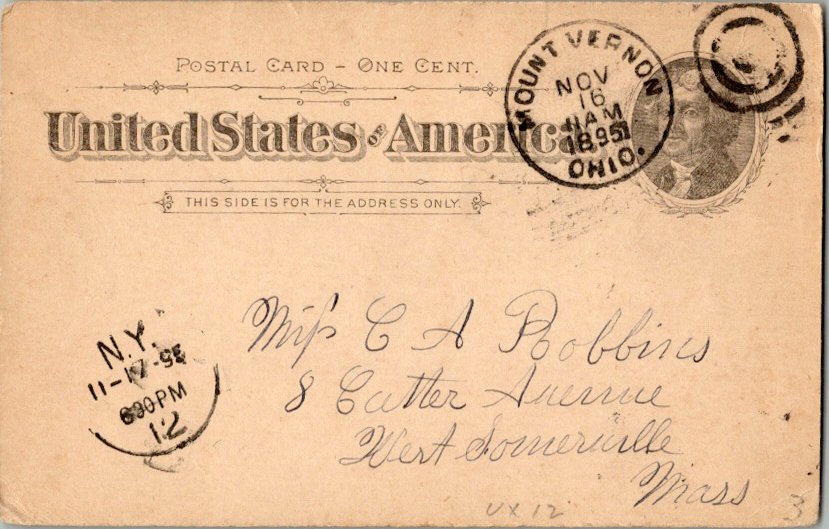 POSTAL CARD – ONE CENT.
United States OF America
THIS SIDE IS FOR THE ADDRESS ONLY.
MOUNT VERNON
NOV
16
11 AM
1895
OHIO.
N.Y.
11-17-95
630PM
12
Miſs C A Robbins
8 Cutter Avenue
West Somerville
Mass
UX12
3